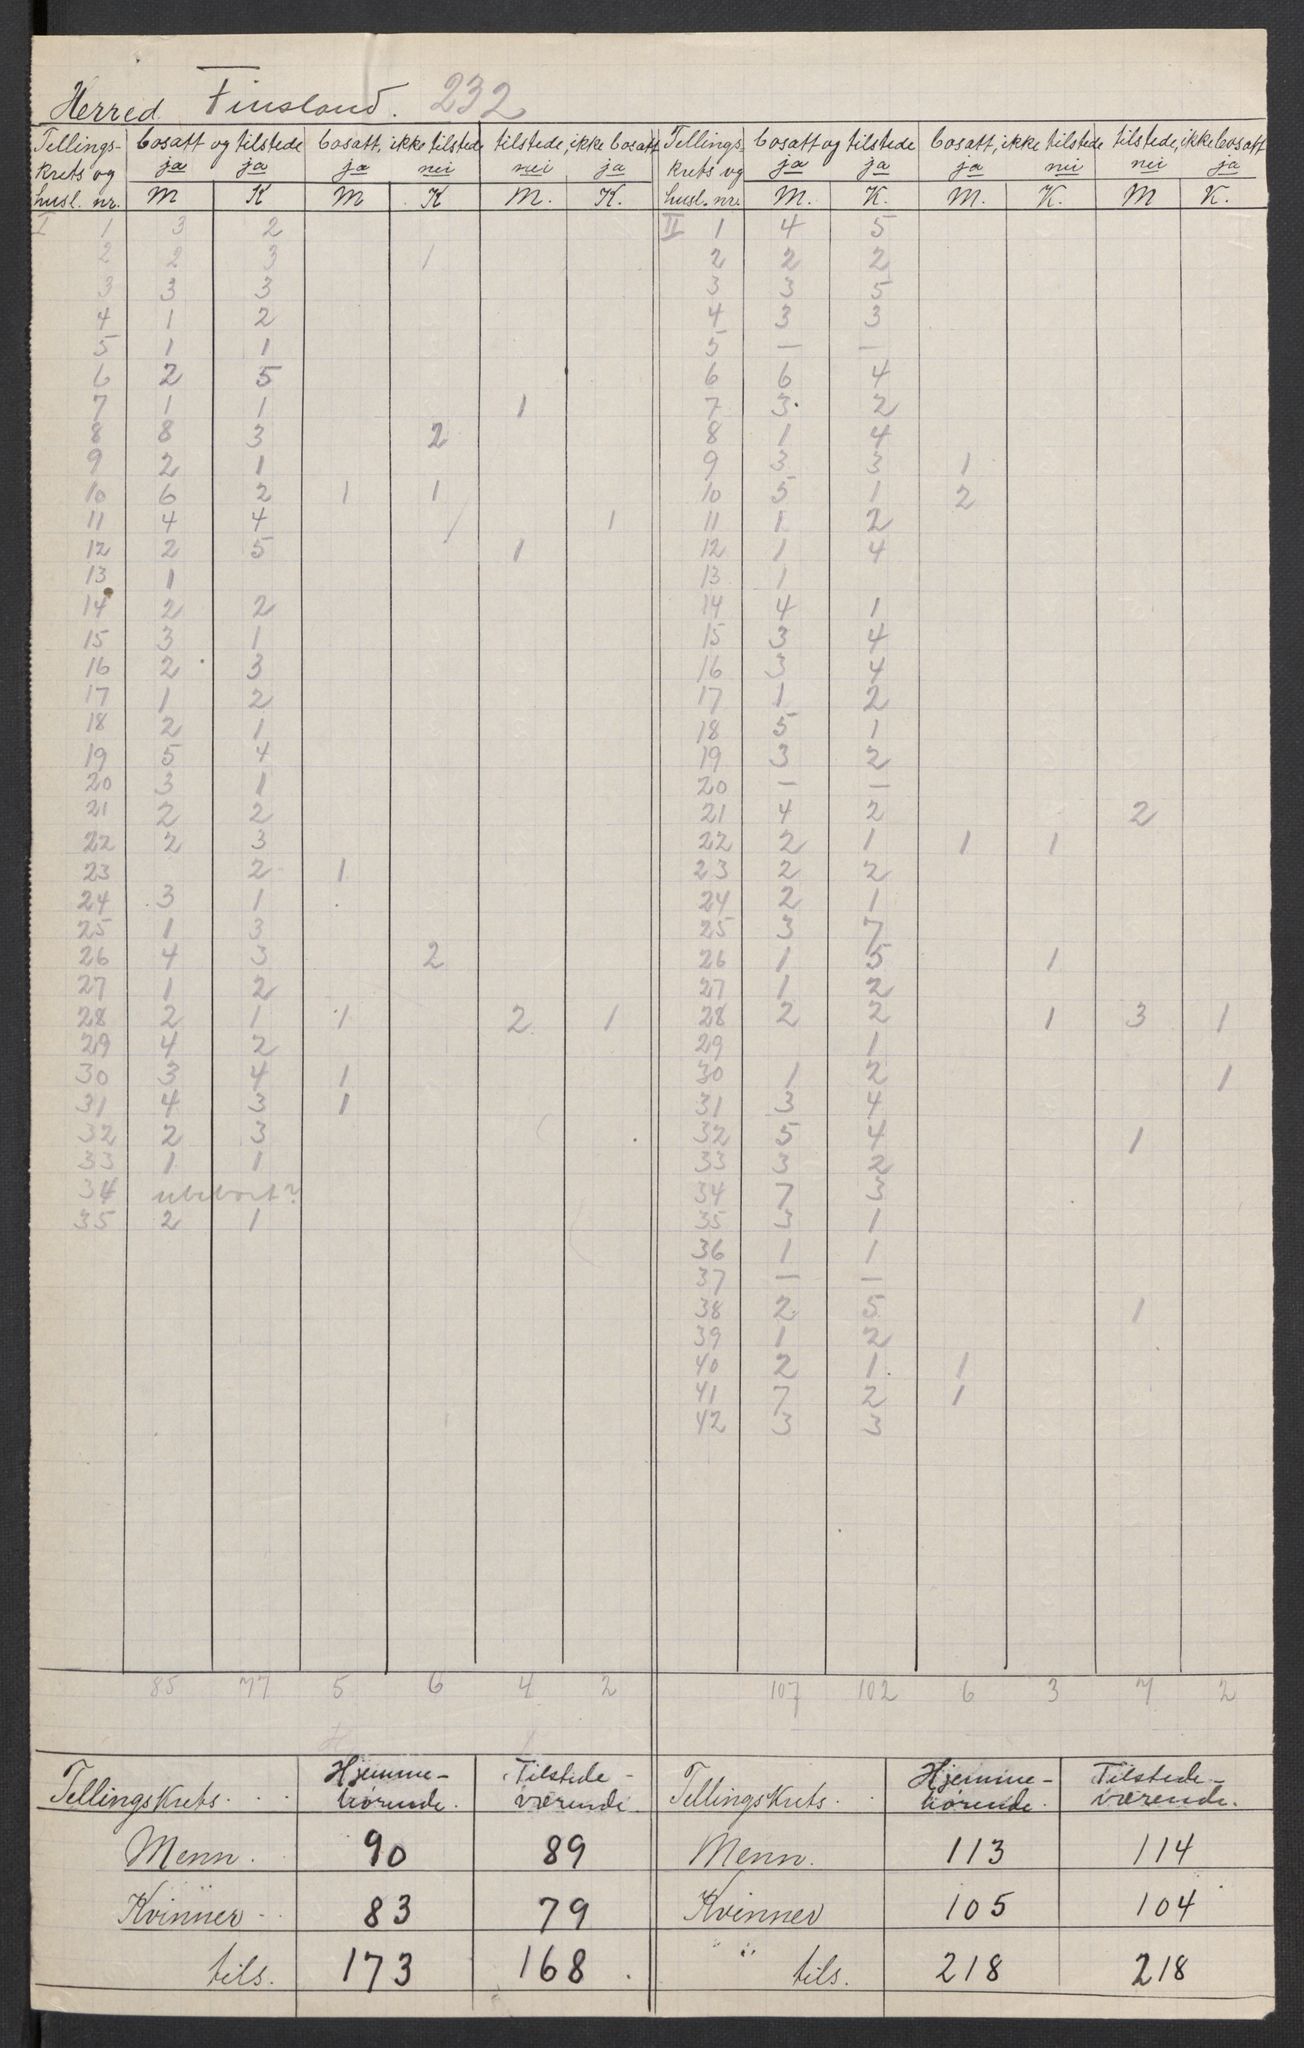 Herred Finsland. 232
Tellings- bosatt og tilstede bosatt, ikke tilstede tilstede, ikke bosatt Tellings bosatt og tilstede bosatt, ikke tilstede tilstede, ikke bosatt
krets og ja ja ja nei nei ja krets og ja ja ja nei nei ja
husl. nr. M K M K M. K. husl. nr. M. K. M. K. M K.
I 1 3 2 II 1 4 5
2 2 3 1 2 2 2
3 3 3 3 3 5
4 1 2 4 3 3
5 1 1 5 — —
6 2 5 6 6 4
7 1 1 1 7 3 2
8 8 3 2 8 1 4
9 2 1 9 3 3 1
10 6 2 1 1 10 5 1 2
11 4 4 1 11 1 2
12 2 5 1 12 1 4
13 1 13 1
14 2 2 14 4 1
15 3 1 15 3 4
16 2 3 16 3 4
17 1 2 17 1 2
18 2 1 18 5 1
19 5 4 19 3 2
20 3 1 20 — —
21 2 2 21 4 2 2
22 2 3 22 2 1 1 1
23 2 1 23 2 2
24 3 1 24 2 1
25 1 3 25 3 7
26 4 3 2 26 1 5 1
27 1 2 27 1 2
28 2 1 1 2 1 28 2 2 1 3 1
29 4 2 29 1
30 3 4 1 30 1 2 1
31 4 3 1 31 3 4
32 2 3 32 5 4 1
33 1 1 33 3 2
34 ubebort? 34 7 3
35 2 1 35 3 1
36 1 1
37 — —
38 2 5 1
39 1 2
40 2 1 1
41 7 2 1
42 3 3
85 77 5 6 4 2 107 102 6 3 7 2
Hjemme- Tilstede- Hjemme- Tilstede-
Tellingskrets hørende. værende. Tellingskrets hørende. værende.
Menn. 90 89 Menn. 113 114
Kvinner 83 79 Kvinner 105 104
tils. 173 168. tils. 218 218